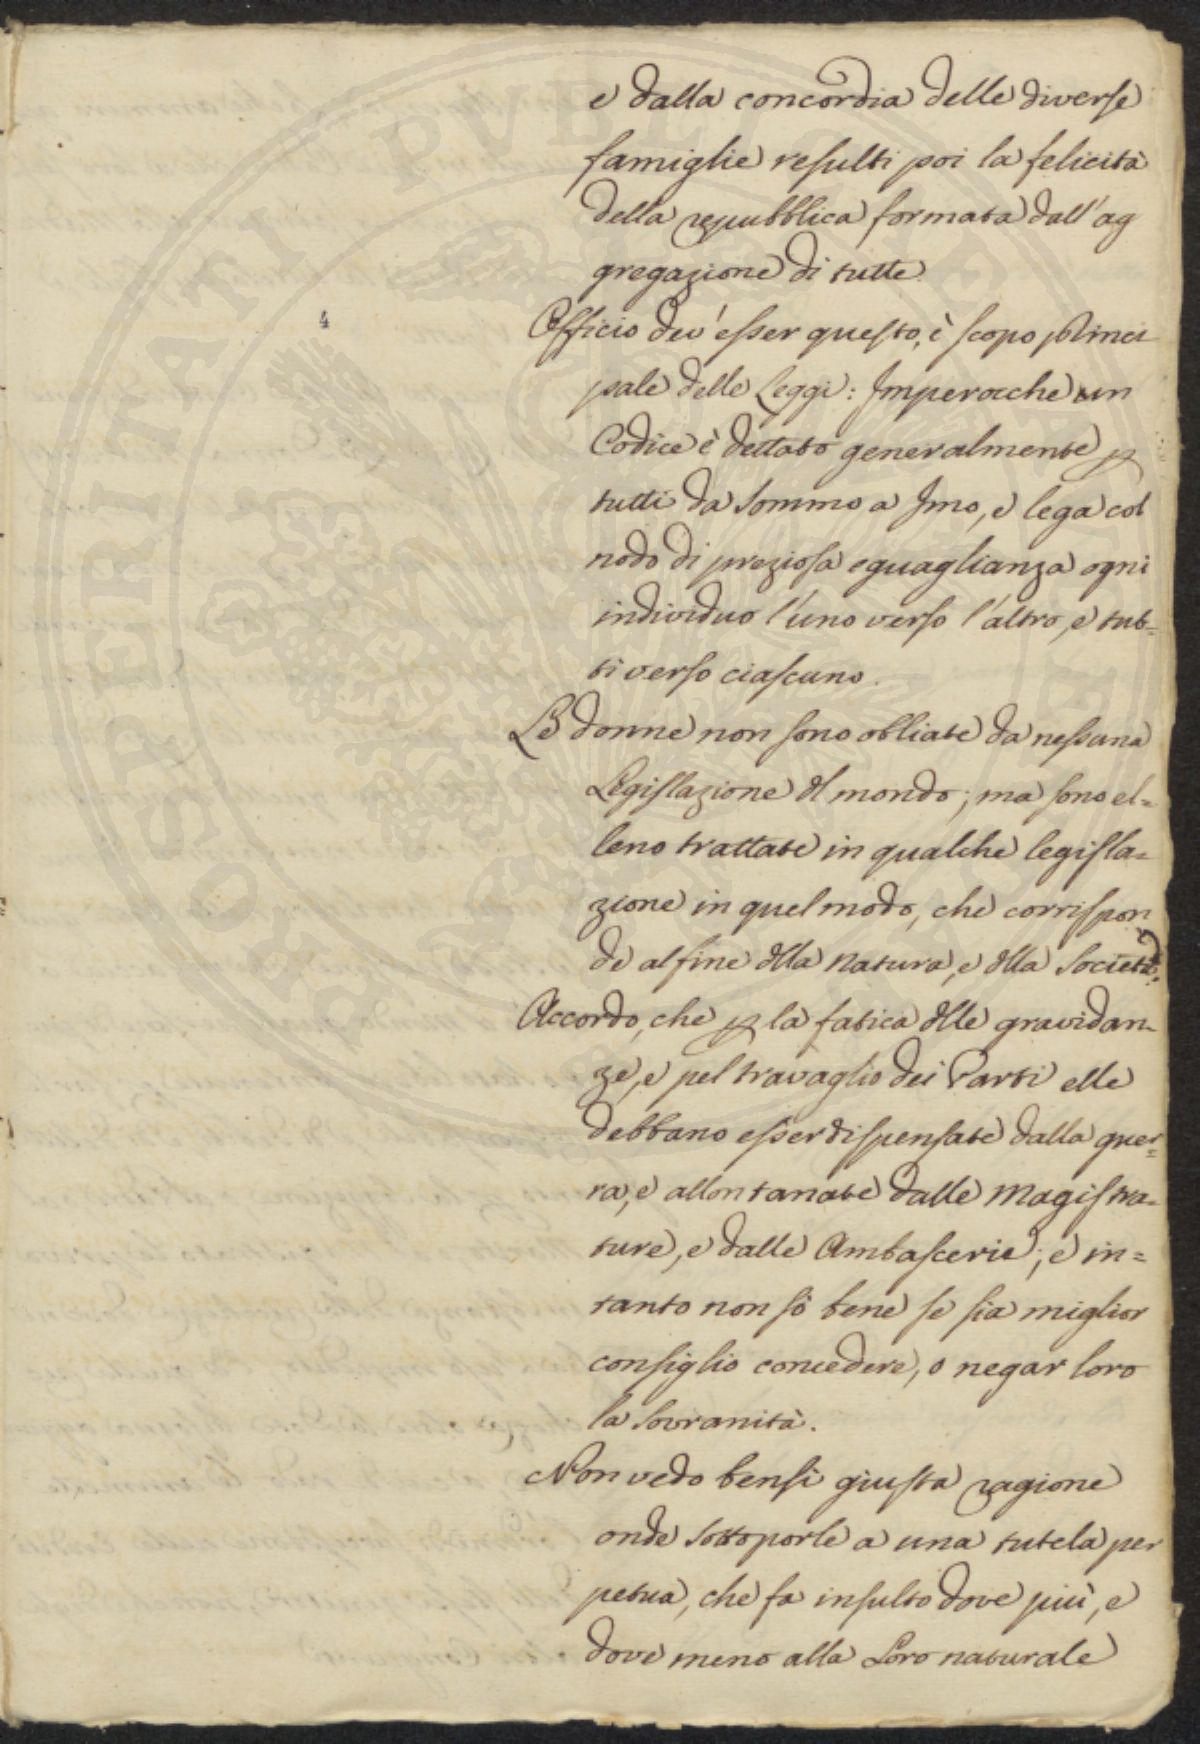 e dalla concordia delle diverse
famiglie resulti poi la felicità
della repubblica formata dall'ag
gregazione di tutte.
4
Officio dev'esser questo, è scopo princi
pale delle Leggi: Imperocche un
Codice è dettato generalmente p
tutti da sommo a Imo, e lega col
nodo di preziosa eguaglianza ogni
individuo l'uno verso l'altro, e tut=
ti verso ciascuno.
Le donne non sono obliate da nessuna
Legislazione dl mondo; ma sono el=
leno trattate in qualche legisla=
zione in quel modo, che corrispon
de al fine dlla natura, e dlla Società?
Accordo, che p la fatica dlle gravidan=
ze, e pel travaglio dei Parti elle
debbano esser dispensate dalla guer=
ra, e allontanate dalle Magistra=
ture, e dalle Ambascerie; e in=
tanto non sò bene se sia miglior
consiglio concedere, o negar loro
la Sovranità.
Non vedo bensì giusta ragione
onde sottoporle a una tutela per
petua, che fa insulto dove più, e
dove meno alla Loro naturale
PROSPERITATI PVBLICAE